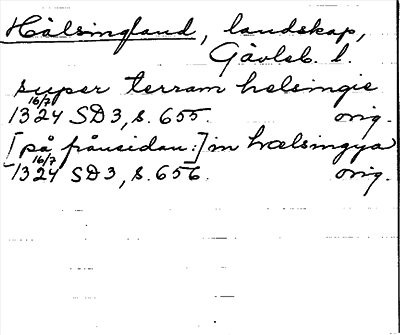 Hälsingland, landskap,
Gävleb. l.
super terram helsingie
16/7 1324 SD3, s. 655. orig.
[på frånsidan:] in hælsingya
16/7 1324 SD3, s. 656. orig.